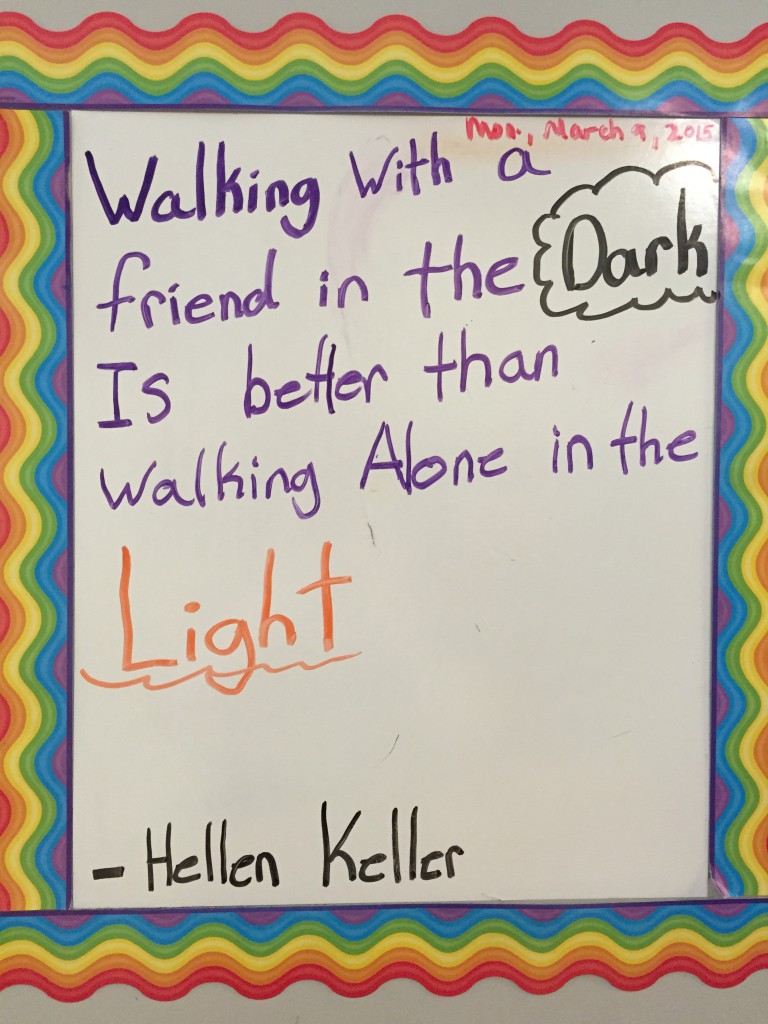 Mon, March 9, 2015
Walking with a
friend in the Dark
Is better than
walking Alone in the
Light
- Hellen Keller